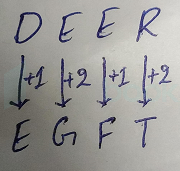 D E E R
+1 +2 +1 +2
E G F T